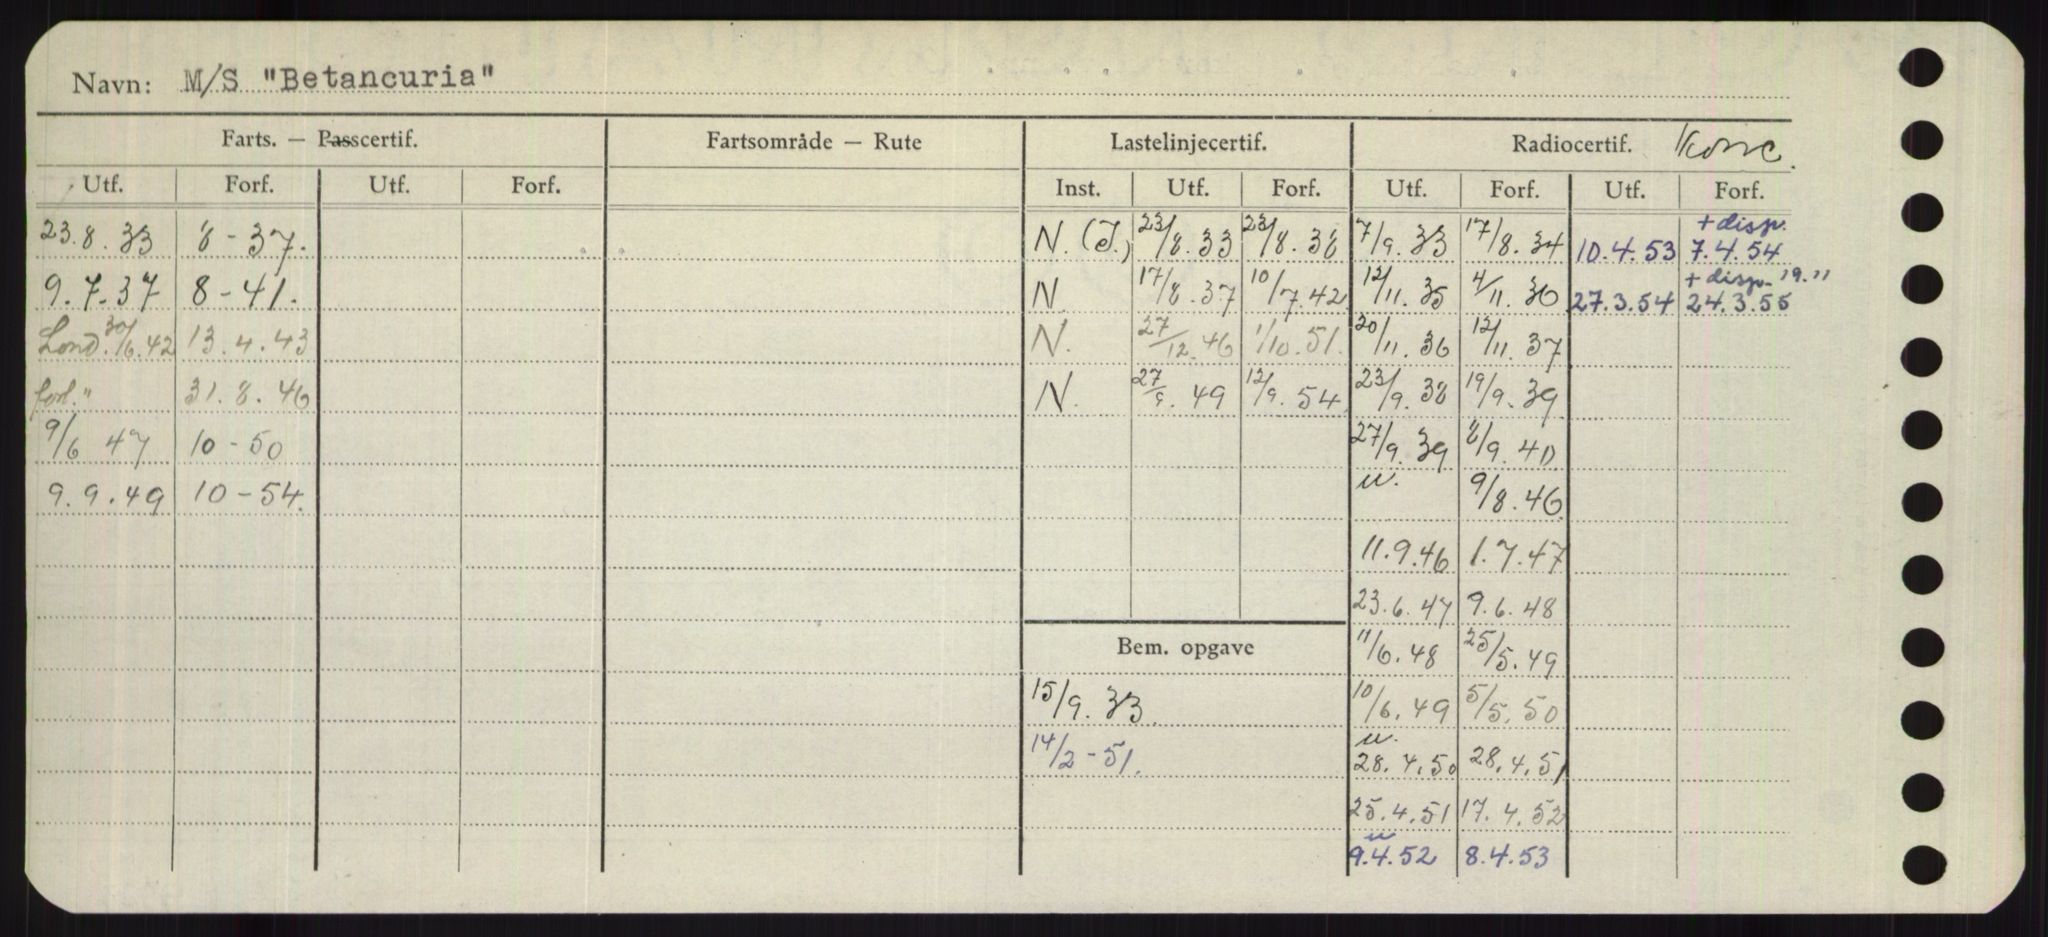 Navn: M/S "Betancuria"
Farts. — Passcertif. Fartsområde — Rute Lastelinjecertif. Radiocertif.
Utf. Forf. Utf. Forf. Inst. Utf. Forf. Utf. Forf. Utf. Forf.
+ disp.
23.8.33 8-37. N. (I.) 23/8.33 23/8.38 7/9.33 17/8.34 10.4.53 7.4.54
+ disp. "9."
9.7.37 8-41. N 17/8.37 10/7.42 12/11.35 4/11.36 27.3.54 24.3.55
Lond. 30/6.42 13.4.43 N. 27/12.46 1/10.51. 20/11.36 12/11.37
forl." 31.8.46 N. 27/9.49 12/9.54 23/9.38 19/9.39
9/6 47 10-50 27/9.39 8/9.40
9.9.49 10-54. u. 9/8.46
11.9.46 1.7.47
23.6.47 9.6.48
Bem. opgave 11/6.48 25/5.49
15/9.33 10/6.49 5/5.50
u.
14/2-51. 28.4.50 28.4.51
25.4.51 17.4.52
u
9.4.52 8.4.53